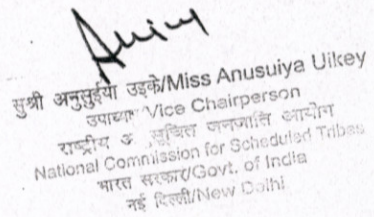 सुश्री अनुसुईया उइके/Miss Anusuiya Uikey
Vice Chairperson
राष्ट्रीय जनजाति आयोग
National Commission for Scheduled Tribes
भारत सरकार/Govt. of India
नई दिल्ली/New Delhi